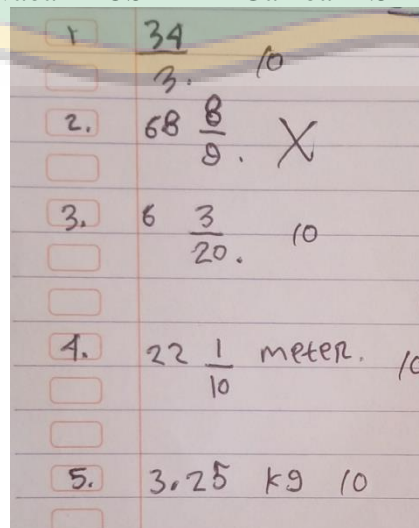 1 34/3. 10
2. 68 8/9. X
3. 6 3/20. 10
4. 22 1/10 meter. 10
5. 3.25 kg 10